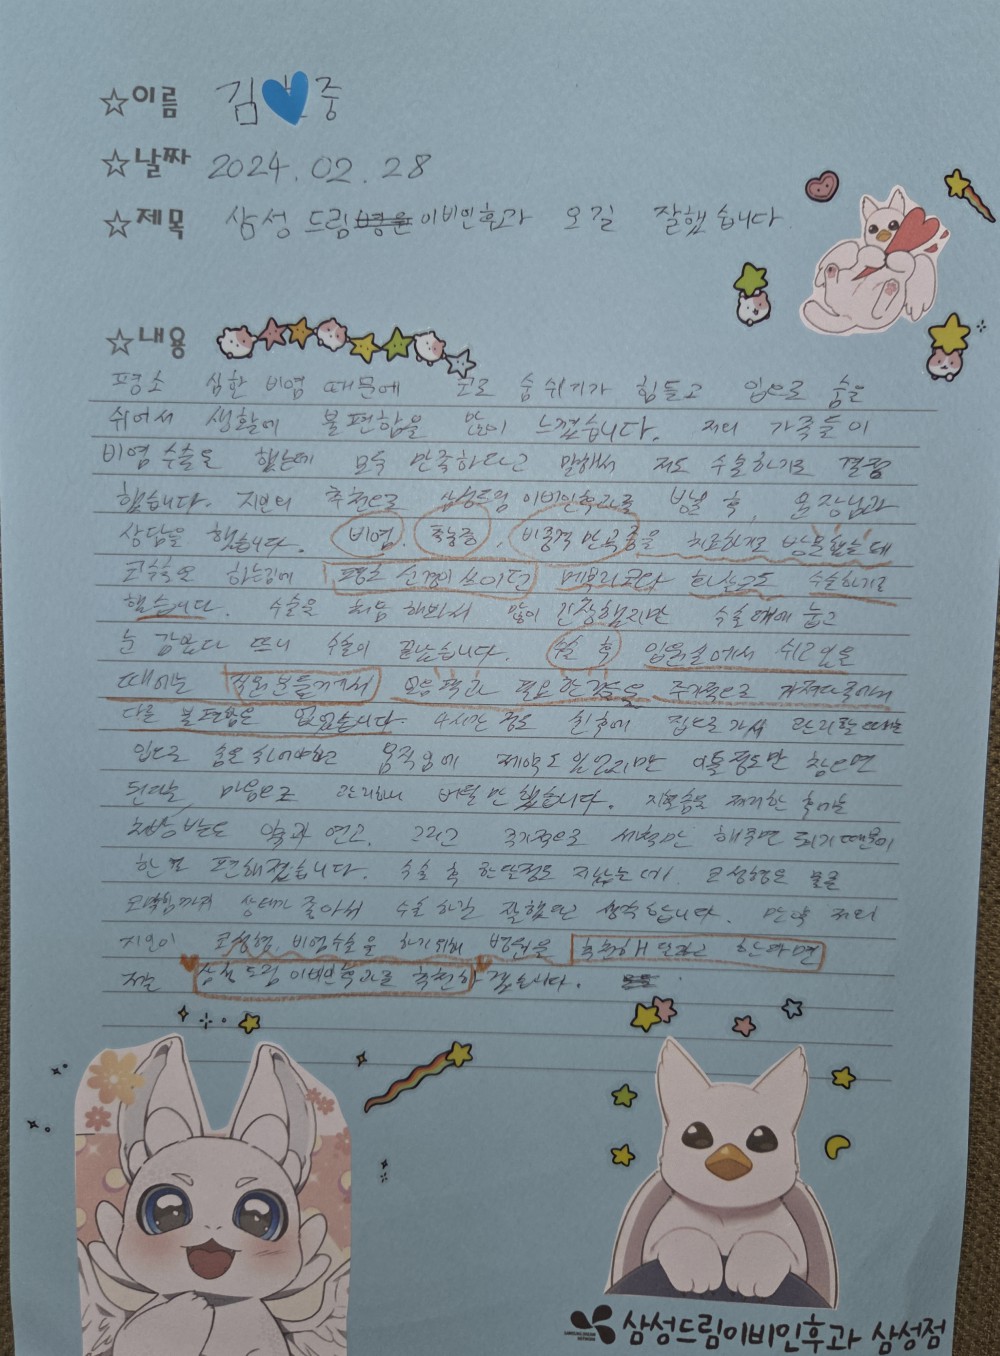 ☆이름 김 중
☆날짜 2024.02.28
☆제목 삼성드림병원이비인후과 오길 잘했습니다
☆내용
평소 심한 비염 때문에 코로 숨쉬기가 힘들고 입으로 숨을
쉬어서 생활에 불편함을 많이 느꼈습니다. 저희 가족들이
비염 수술을 했는데 모두 만족하다고 말해서 저도 수술하기로 결정
했습니다. 지인의 추천으로 삼성드림 이비인후과를 방문 후, 원장님과
상담을 했습니다. 비염, 축농증, 비중격 만곡증을 치료하기로 방문했는데
코수술을 하는김에 평소 신경이 쓰이던 매부리코와 휜살고도 수술하기로
했습니다. 수술을 처음 해봐서 많이 긴장했지만 수술대에 눕고
눈 감았다 뜨니 수술이 끝났습니다. 수술 후 입원실에서 쉬고있을
때에는 직원분들께서 얼음팩과 필요한것들을 주기적으로 가져다주셔서
다른 불편함은 없었습니다. 4시간 정도 쉰후에 집으로가서 관리할때는
입으로 숨을 쉬어야하고 움직임에 제약도 있었지만 이틀정도만 참으면
된다는 마음으로 관리하니 버틸만 했습니다. 지혈솜을 제거한 후에는
처방받는 약과 연고, 그리고 주기적으로 세척만 해주면 되기때문에
한결 편해졌습니다. 수술 후 한달정도 지났는데 코성형은 물론
코막힘까지 상태가 좋아서 수술하길 잘했다 생각합니다. 만약 저의
지인이 코성형, 비염수술을 하기위해 병원을 추천해 달라고 한다면
저는 삼성드림이비인후과를 추천하겠습니다.
삼성드림이비인후과 삼성점